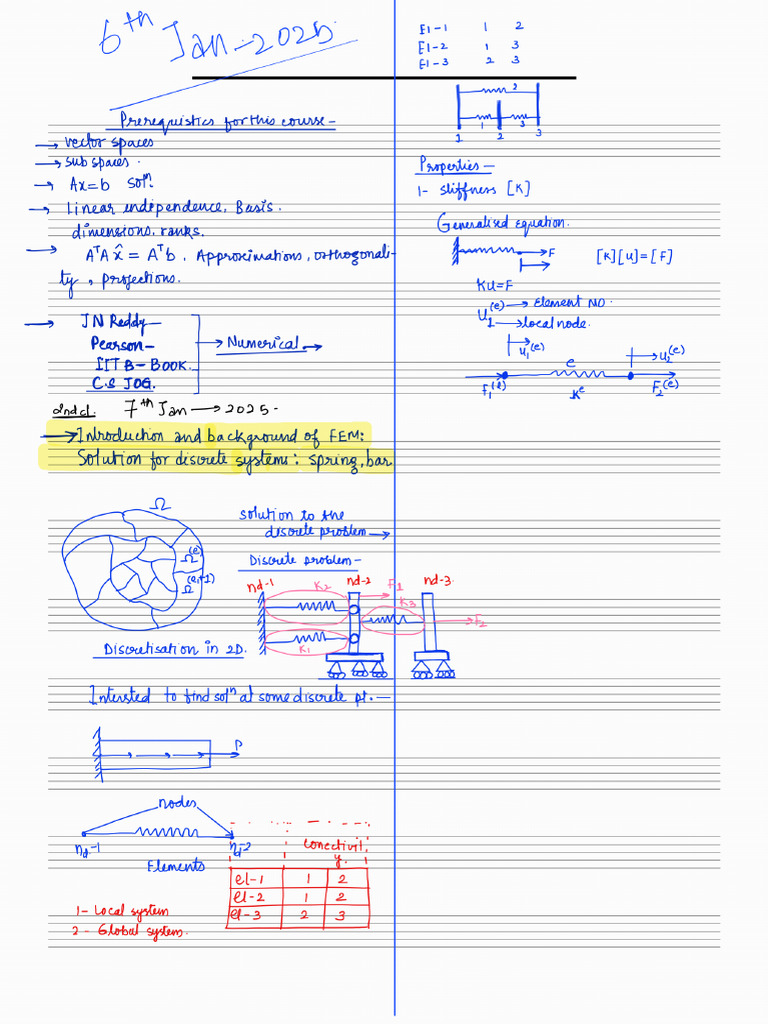 6th Jan-2025
Prerequistics for this course-
→ vector spaces
→ sub spaces.
→ Ax=b soln.
→ Linear independence, Basis.
dimensions, ranks.
→ AᵀA x̂ = Aᵀb, Approximations, orthogonali-
ty, projections.
→ JN Reddy-
Pearson-
IIT B- BOOK.
C.S JOG.
→ Numerical →
2nd cl. 7th Jan → 2025.
→ Introduction and background of FEM:
Solution for discrete systems: spring, bar.
Ω
Ω(e)
Ω(e+1)
Discretisation in 2D.
solution to the
discrete problem →
Discrete problem-
nd-1 nd-2 nd-3
K2 F1
K3
F2
K1
Intersted to find soln at some discrete pt.-
P
nodes
nd-1 nd-2
Elements
1- Local system
2- Global system.
Conectivit
y.
el-1 1 2
el-2 1 2
el-3 2 3
El-1 1 2
El-2 1 3
El-3 2 3
2
1 3
1 2 3
Properties-
1- stiffness [K]
Generalised Equation.
F
[K][u]=[F]
Ku=F
u1(e) → Element NO.
→ local node.
u1(e) e u2(e)
F1(e) Ke F2(e)